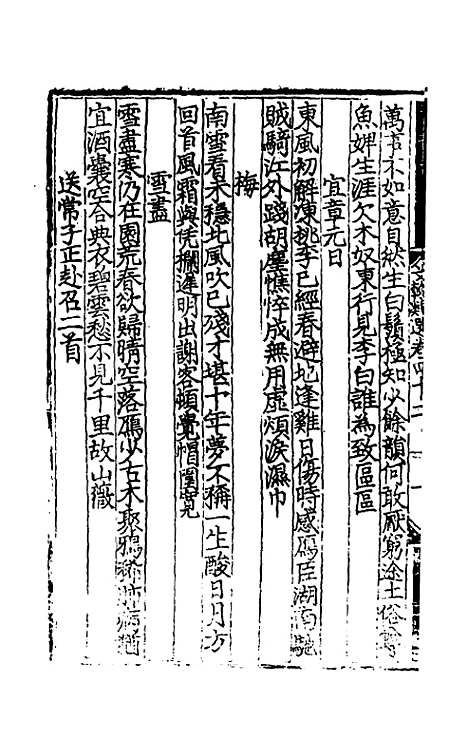 萬事不如意自然生白鬚極知少餘韻何敢厭窮途土俗
魚婢生涯欠木奴東行見李白誰為致區區
宜章元日
東風初解凍桃李已經春避地逢雞日傷時感鴈臣湖南馳
賊騎江外踐胡塵憔悴成無用虛煩淚濕巾
梅
南雪看未穩北風吹已殘才堪十年夢不稱一生酸日月方
回首風霜與凭欄遲明出謝客頓覺帽圍寬
雪盡
雪盡寒乃在園荒春欲歸晴空落鴈少古木聚鴉稀
宜酒囊空合典衣碧雲愁不見千里故山薇
送常子正赴召二首